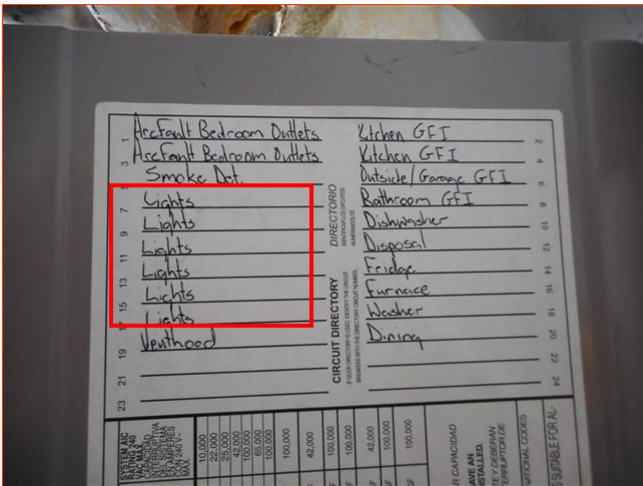 1 Arcfault Bedroom Outlets
3 Arcfault Bedroom Outlets
5 Smoke Det.
7 Lights
9 Lights
11 Lights
13 Lights
15 Lights
17 Lights
19 Venthood
21
23
DIRECTORIO
CIRCUIT DIRECTORY
Kitchen GFI 2
Kitchen GFI 4
Outside/Garage GFI 6
Bathroom GFI 8
Dishwasher 10
Disposal 12
Fridge 14
Furnace 16
Washer 18
Dining 20
22
24
SYSTEM AIC
RATING 240
VAC MAX.
CAPACIDAD
INTERRUPTIVA
DEL SISTEMA
EN AMPERES
CON 240 V~
MAX.
10,000
22,000
25,000
42,000
100,000
65,000
100,000
100,000
42,000
100,000
100,000
42,000
100,000
100,000
R CAPACIDAD
HAVE AN
NSTALLED.
TE Y DEBERAN
TERRUPTOR DE
NATIONAL CODES
SUITABLE FOR AL-